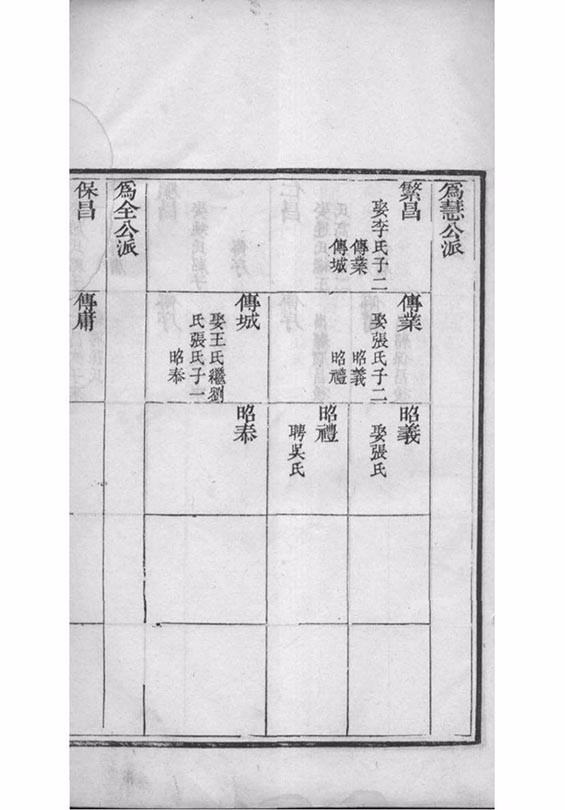 為慧公派
繁昌
娶李氏子二
傳業
傳城
傳業
娶張氏子二
昭義
昭禮
昭義
娶張氏
昭禮
聘吳氏
傳城
娶王氏繼劉
氏張氏子一
昭泰
昭泰
為全公派
保昌
傳庸